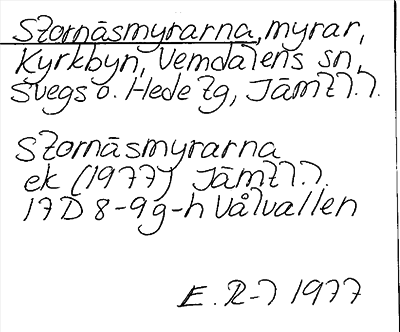 Stornäsmyrarna, myrar,
Kyrkbyn, Vemdalens sn,
Svegs o. Hede tg, Jämtl.l.
Stornäsmyrarna
ek (1977) Jämtl.l.
17D 8-9g-h Vålvallen
E. R-l 1977